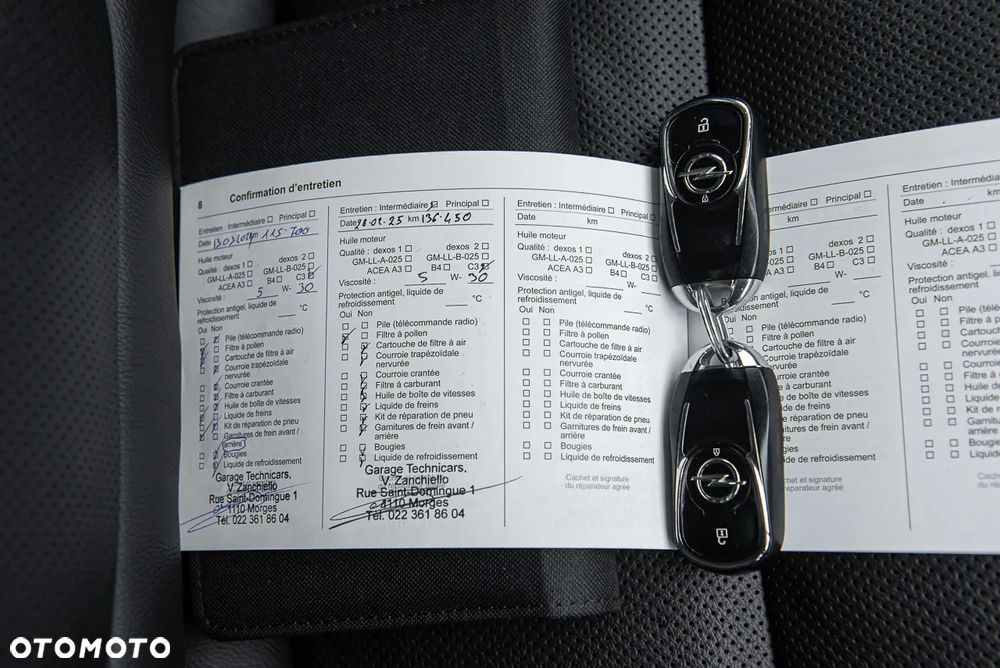 8 Confirmation d'entretien
Entretien : Intermédiaire Principal
Date km 115 700
Huile moteur
Qualité : dexos 1 dexos 2
GM-LL-A-025 GM-LL-B-025
ACEA A3 B4 C3
Viscosité : 5 W- 30
Protection antigel, liquide de
refroidissement °C
Oui Non
Pile (télécommande radio)
Filtre à pollen
Cartouche de filtre à air
Courroie trapézoïdale
nervurée
Courroie crantée
Filtre à carburant
Huile de boîte de vitesses
Liquide de freins
Kit de réparation de pneu
Garnitures de frein avant /
arrière
Bougies
Liquide de refroidissement
Garage Technicars,
V. Zanchiello
Rue Saint-Domingue 1
1110 Morges
Tél. 022 361 86 04
Entretien : Intermédiaire Principal
Date 28.02.25 km 136.450
Huile moteur
Qualité : dexos 1 dexos 2
GM-LL-A-025 GM-LL-B-025
ACEA A3 B4 C3
Viscosité : 5 W- 30
Protection antigel, liquide de
refroidissement °C
Oui Non
Pile (télécommande radio)
Filtre à pollen
Cartouche de filtre à air
Courroie trapézoïdale
nervurée
Courroie crantée
Filtre à carburant
Huile de boîte de vitesses
Liquide de freins
Kit de réparation de pneu
Garnitures de frein avant /
arrière
Bougies
Liquide de refroidissement
Garage Technicars,
V. Zanchiello
Rue Saint-Domingue 1
1110 Morges
Tél. 022 361 86 04
Entretien : Intermédiaire Principal
Date km
Huile moteur
Qualité : dexos 1 dexos 2
GM-LL-A-025 GM-LL-B-025
ACEA A3 B4 C3
Viscosité : W-
Protection antigel, liquide de
refroidissement °C
Oui Non
Pile (télécommande radio)
Filtre à pollen
Cartouche de filtre à air
Courroie trapézoïdale
nervurée
Courroie crantée
Filtre à carburant
Huile de boîte de vitesses
Liquide de freins
Kit de réparation de pneu
Garnitures de frein avant /
arrière
Bougies
Liquide de refroidissement
Cachet et signature
du réparateur agréé
Principal
km
dexos 2
GM-LL-B-025
B4 C3
W-
liquide de
°C
(télécommande radio)
pollen
de filtre à air
trapézoïdale
crantée
carburant
boîte de vitesses
de freins
réparation de pneu
de frein avant /
refroidissement
et signature
réparateur agréé
Entretien : Intermédiaire
Date
Huile moteur
Qualité : dexos 1
GM-LL-A-025
ACEA A3
Viscosité :
Protection antigel
refroidissement
Oui Non
OTOMOTO